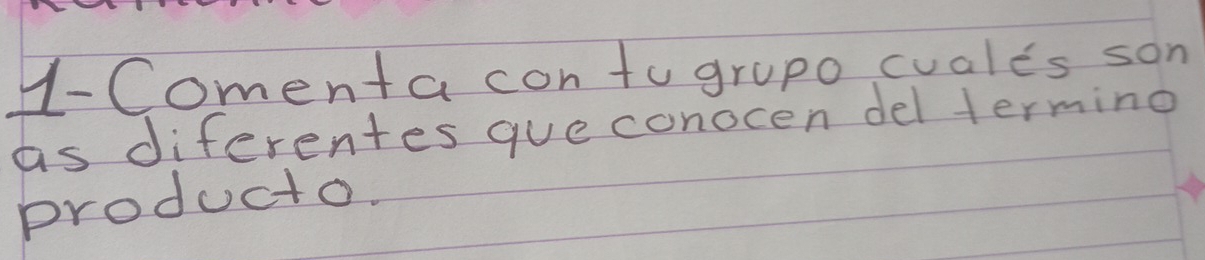 1-Comenta con tu grupo cualés son
as diferentes que conocen del termino
producto.